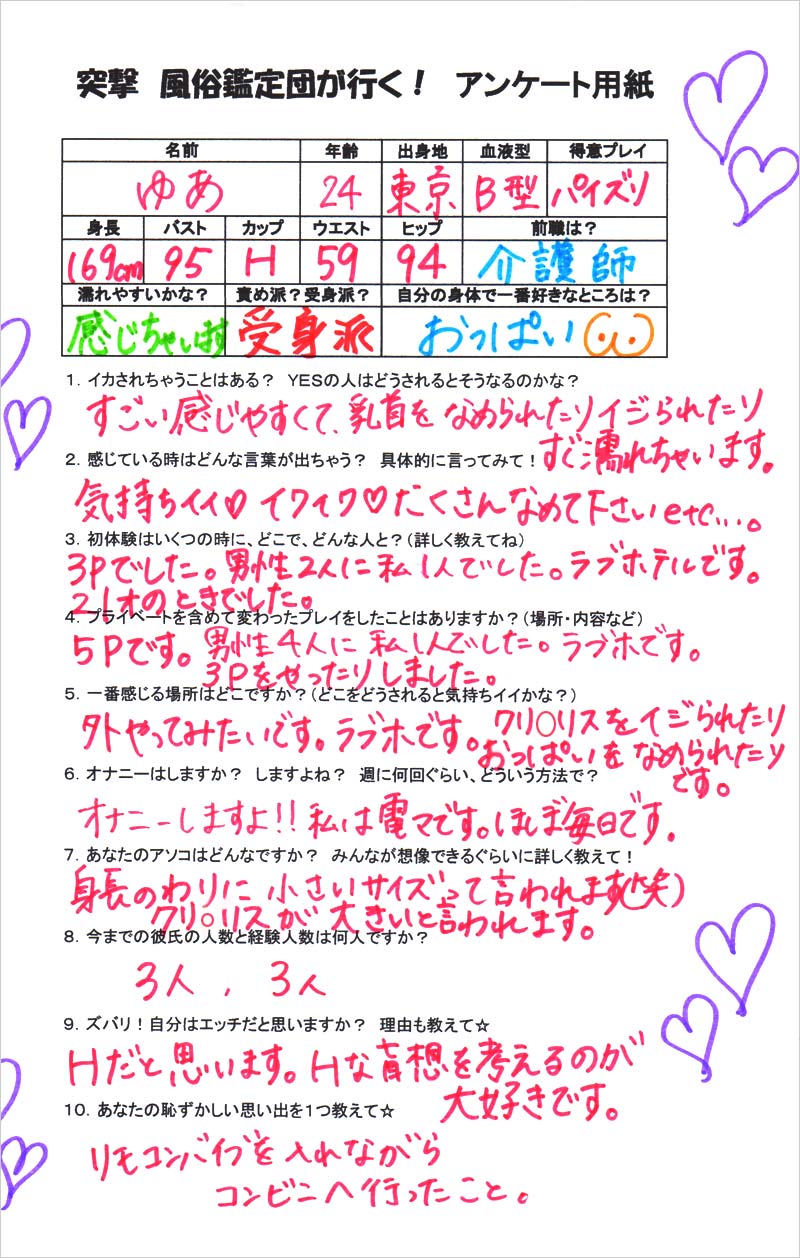 突撃 風俗鑑定団が行く! アンケート用紙
名前 年齢 出身地 血液型 得意プレイ
ゆあ 24 東京 B型 パイズリ
身長 バスト カップ ウエスト ヒップ 前職は?
169cm 95 H 59 94 介護師
濡れやすいかな? 責め派?受身派? 自分の身体で一番好きなところは?
感じちゃいます 受身派 おっぱい
1. イカされちゃうことはある? YESの人はどうされるとそうなるのかな?
すごい感じやすくて、乳首をなめられたりイジられたり
すぐ濡れちゃいます。
2. 感じている時はどんな言葉が出ちゃう? 具体的に言ってみて!
気持ちイイ♡ イクイク♡だくさんなめて下さいetc...。
3. 初体験はいくつの時に、どこで、どんな人と?(詳しく教えてね)
3Pでした。男性2人に私1人でした。ラブホテルです。
21才のときでした。
4. プライベートを含めて変わったプレイをしたことはありますか?(場所・内容など)
5Pです。男性4人に私1人でした。ラブホです。
3Pをやったりしました。
5. 一番感じる場所はどこですか?(どこをどうされると気持ちイイかな?)
外やってみたいです。ラブホです。クリ○リスをイジられたり
おっぱいをなめられたり
です。
6. オナニーはしますか? しますよね? 週に何回ぐらい、どういう方法で?
オナニーしますよ!!私は電マです。ほぼ毎日です。
7. あなたのアソコはどんなですか? みんなが想像できるぐらいに詳しく教えて!
身長のわりに小さいサイズって言われます(笑)
クリ○リスが大きいと言われます。
8. 今までの彼氏の人数と経験人数は何人ですか?
3人, 3人
9. ズバリ!自分はエッチだと思いますか? 理由も教えて☆
Hだと思います。Hな盲想を考えるのが
大好きです。
10. あなたの恥ずかしい思い出を1つ教えて☆
リモコンバイブを入れながら
コンビニへ行ったこと。